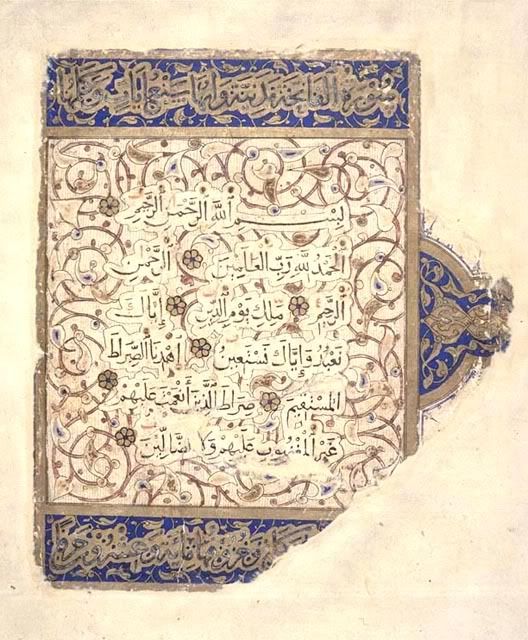 سورة الفاتحة مدنية سبع ايات وكلمها
بسم الله الرحمن الرحيم
الحمد لله رب العالمين الرحمن
الرحيم ملك يوم الدين إياك
نعبد وإياك نستعين اهدنا الصراط
المستقيم صراط الذين أنعمت عليهم
غير المغضوب عليهم ولا الضالين
وحروفها مائة وعشرون حرفا